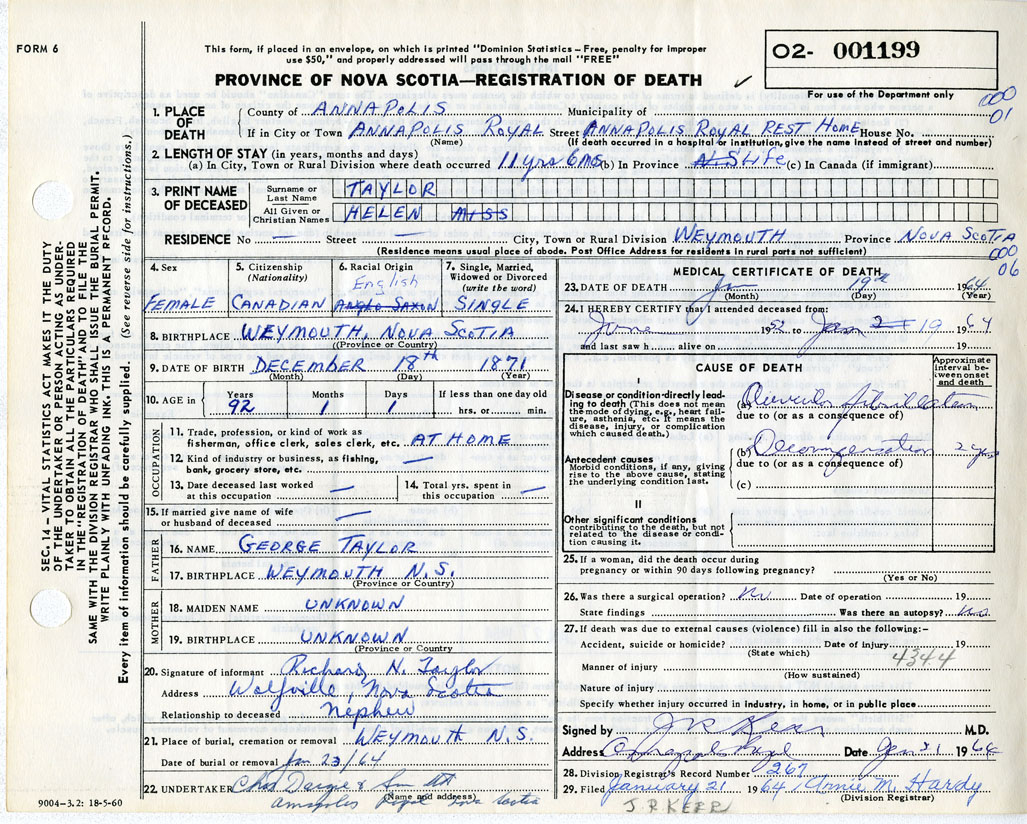 FORM 6
This form, if placed in an envelope, on which is printed "Dominion Statistics – Free, penalty for improper
use $50," and properly addressed will pass through the mail "FREE"
PROVINCE OF NOVA SCOTIA—REGISTRATION OF DEATH
02- 001199
For use of the Department only
000
01
1. PLACE OF DEATH
County of ANNAPOLIS Municipality of
If in City or Town ANNAPOLIS ROYAL Street ANNAPOLIS ROYAL REST HOME House No.
(Name) (If death occurred in a hospital or institution, give the name instead of street and number)
2. LENGTH OF STAY (in years, months and days)
(a) In City, Town or Rural Division where death occurred 11 yrs 6 ms (b) In Province Life (c) In Canada (if immigrant)
3. PRINT NAME OF DECEASED
Surname or Last Name TAYLOR
All Given or Christian Names HELEN MISS
RESIDENCE No — Street — City, Town or Rural Division WEYMOUTH Province NOVA SCOTIA
(Residence means usual place of abode. Post Office Address for residents in rural parts not sufficient)
000
06
4. Sex
FEMALE
5. Citizenship
(Nationality)
CANADIAN
6. Racial Origin
English
ANGLO SAXON
7. Single, Married, Widowed or Divorced
(write the word)
SINGLE
8. BIRTHPLACE WEYMOUTH, NOVA SCOTIA
(Province or Country)
9. DATE OF BIRTH DECEMBER 18th 1871
(Month) (Day) (Year)
10. AGE in
Years Months Days If less than one day old
92 1 1 hrs. or min.
OCCUPATION
11. Trade, profession, or kind of work as
fisherman, office clerk, sales clerk, etc. AT HOME
12. Kind of industry or business, as fishing,
bank, grocery store, etc. —
13. Date deceased last worked
at this occupation —
14. Total yrs. spent in
this occupation —
15. If married give name of wife
or husband of deceased —
FATHER
16. NAME GEORGE TAYLOR
17. BIRTHPLACE WEYMOUTH N.S.
(Province or Country)
MOTHER
18. MAIDEN NAME UNKNOWN
19. BIRTHPLACE UNKNOWN
(Province or Country
20. Signature of informant Richard N. Taylor
Address Wolfville, Nova Scotia
Relationship to deceased Nephew
21. Place of burial, cremation or removal WEYMOUTH N.S.
Date of burial or removal Jan 23/64
22 UNDERTAKER Chas Dargie & Son
(Name and address)
Annapolis Royal Nova Scotia
9004–3.2: 18-5-60
MEDICAL CERTIFICATE OF DEATH
23. DATE OF DEATH Jan 19th 1964
(Month) (Day) (Year)
24. I HEREBY CERTIFY that I attended deceased from:
June 1952 to Jan 19 1964
and last saw h alive on 19
CAUSE OF DEATH
Approximate interval between onset and death
I
Disease or condition directly leading to death (This does not mean the mode of dying, e.g., heart failure, asthenia, etc. It means the disease, injury, or complication which caused death.)
(a) Auricular fibrillation
due to (or as a consequence of)
Antecedent causes
Morbid conditions, if any, giving rise to the above cause, stating the underlying condition last.
(b) Decompensation 2 yrs
due to (or as a consequence of)
(c)
II
Other significant conditions
contributing to the death, but not related to the disease or condition causing it.
25. If a woman, did the death occur during
pregnancy or within 90 days following pregnancy?
(Yes or No)
26. Was there a surgical operation? No Date of operation 19
State findings Was there an autopsy? No
27. If death was due to external causes (violence) fill in also the following:–
Accident, suicide or homicide? Date of injury 19
(State which)
4344
Manner of injury
(How sustained)
Nature of injury
Specify whether injury occurred in industry, in home, or in public place
Signed by J R Kerr M.D.
Address Annapolis Royal Date Jan 21 1964
28. Division Registrar's Record Number 267
29. Filed January 21 1964 Annie M. Hardy
(Division Registrar)
J.R.KERR
SEC. 14 – VITAL STATISTICS ACT MAKES IT THE DUTY
OF THE UNDERTAKER OR PERSON ACTING AS UNDER-
TAKER TO OBTAIN ALL THE PARTICULARS REQUIRED
IN THE "REGISTRATION OF DEATH" AND TO FILE THE
SAME WITH THE DIVISION REGISTRAR WHO SHALL ISSUE THE BURIAL PERMIT.
WRITE PLAINLY WITH UNFADING INK. THIS IS A PERMANENT RECORD.
Every item of information should be carefully supplied. (See reverse side for instructions.)